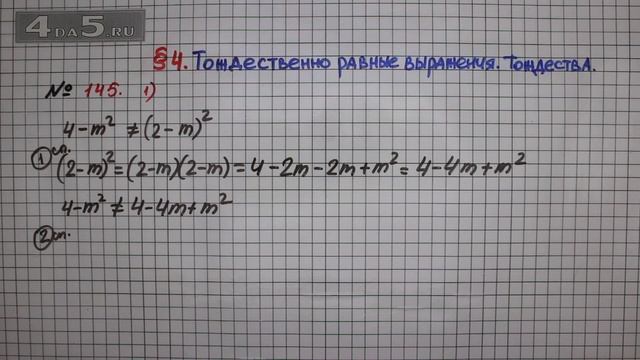 4DA5.RU
§4. Тождественно равные выражения. Тождества.
№ 145. 1)
4-m² ≠ (2-m)²
① сп. (2-m)² = (2-m)(2-m) = 4-2m-2m+m² = 4-4m+m²
4-m² ≠ 4-4m+m²
② сп.